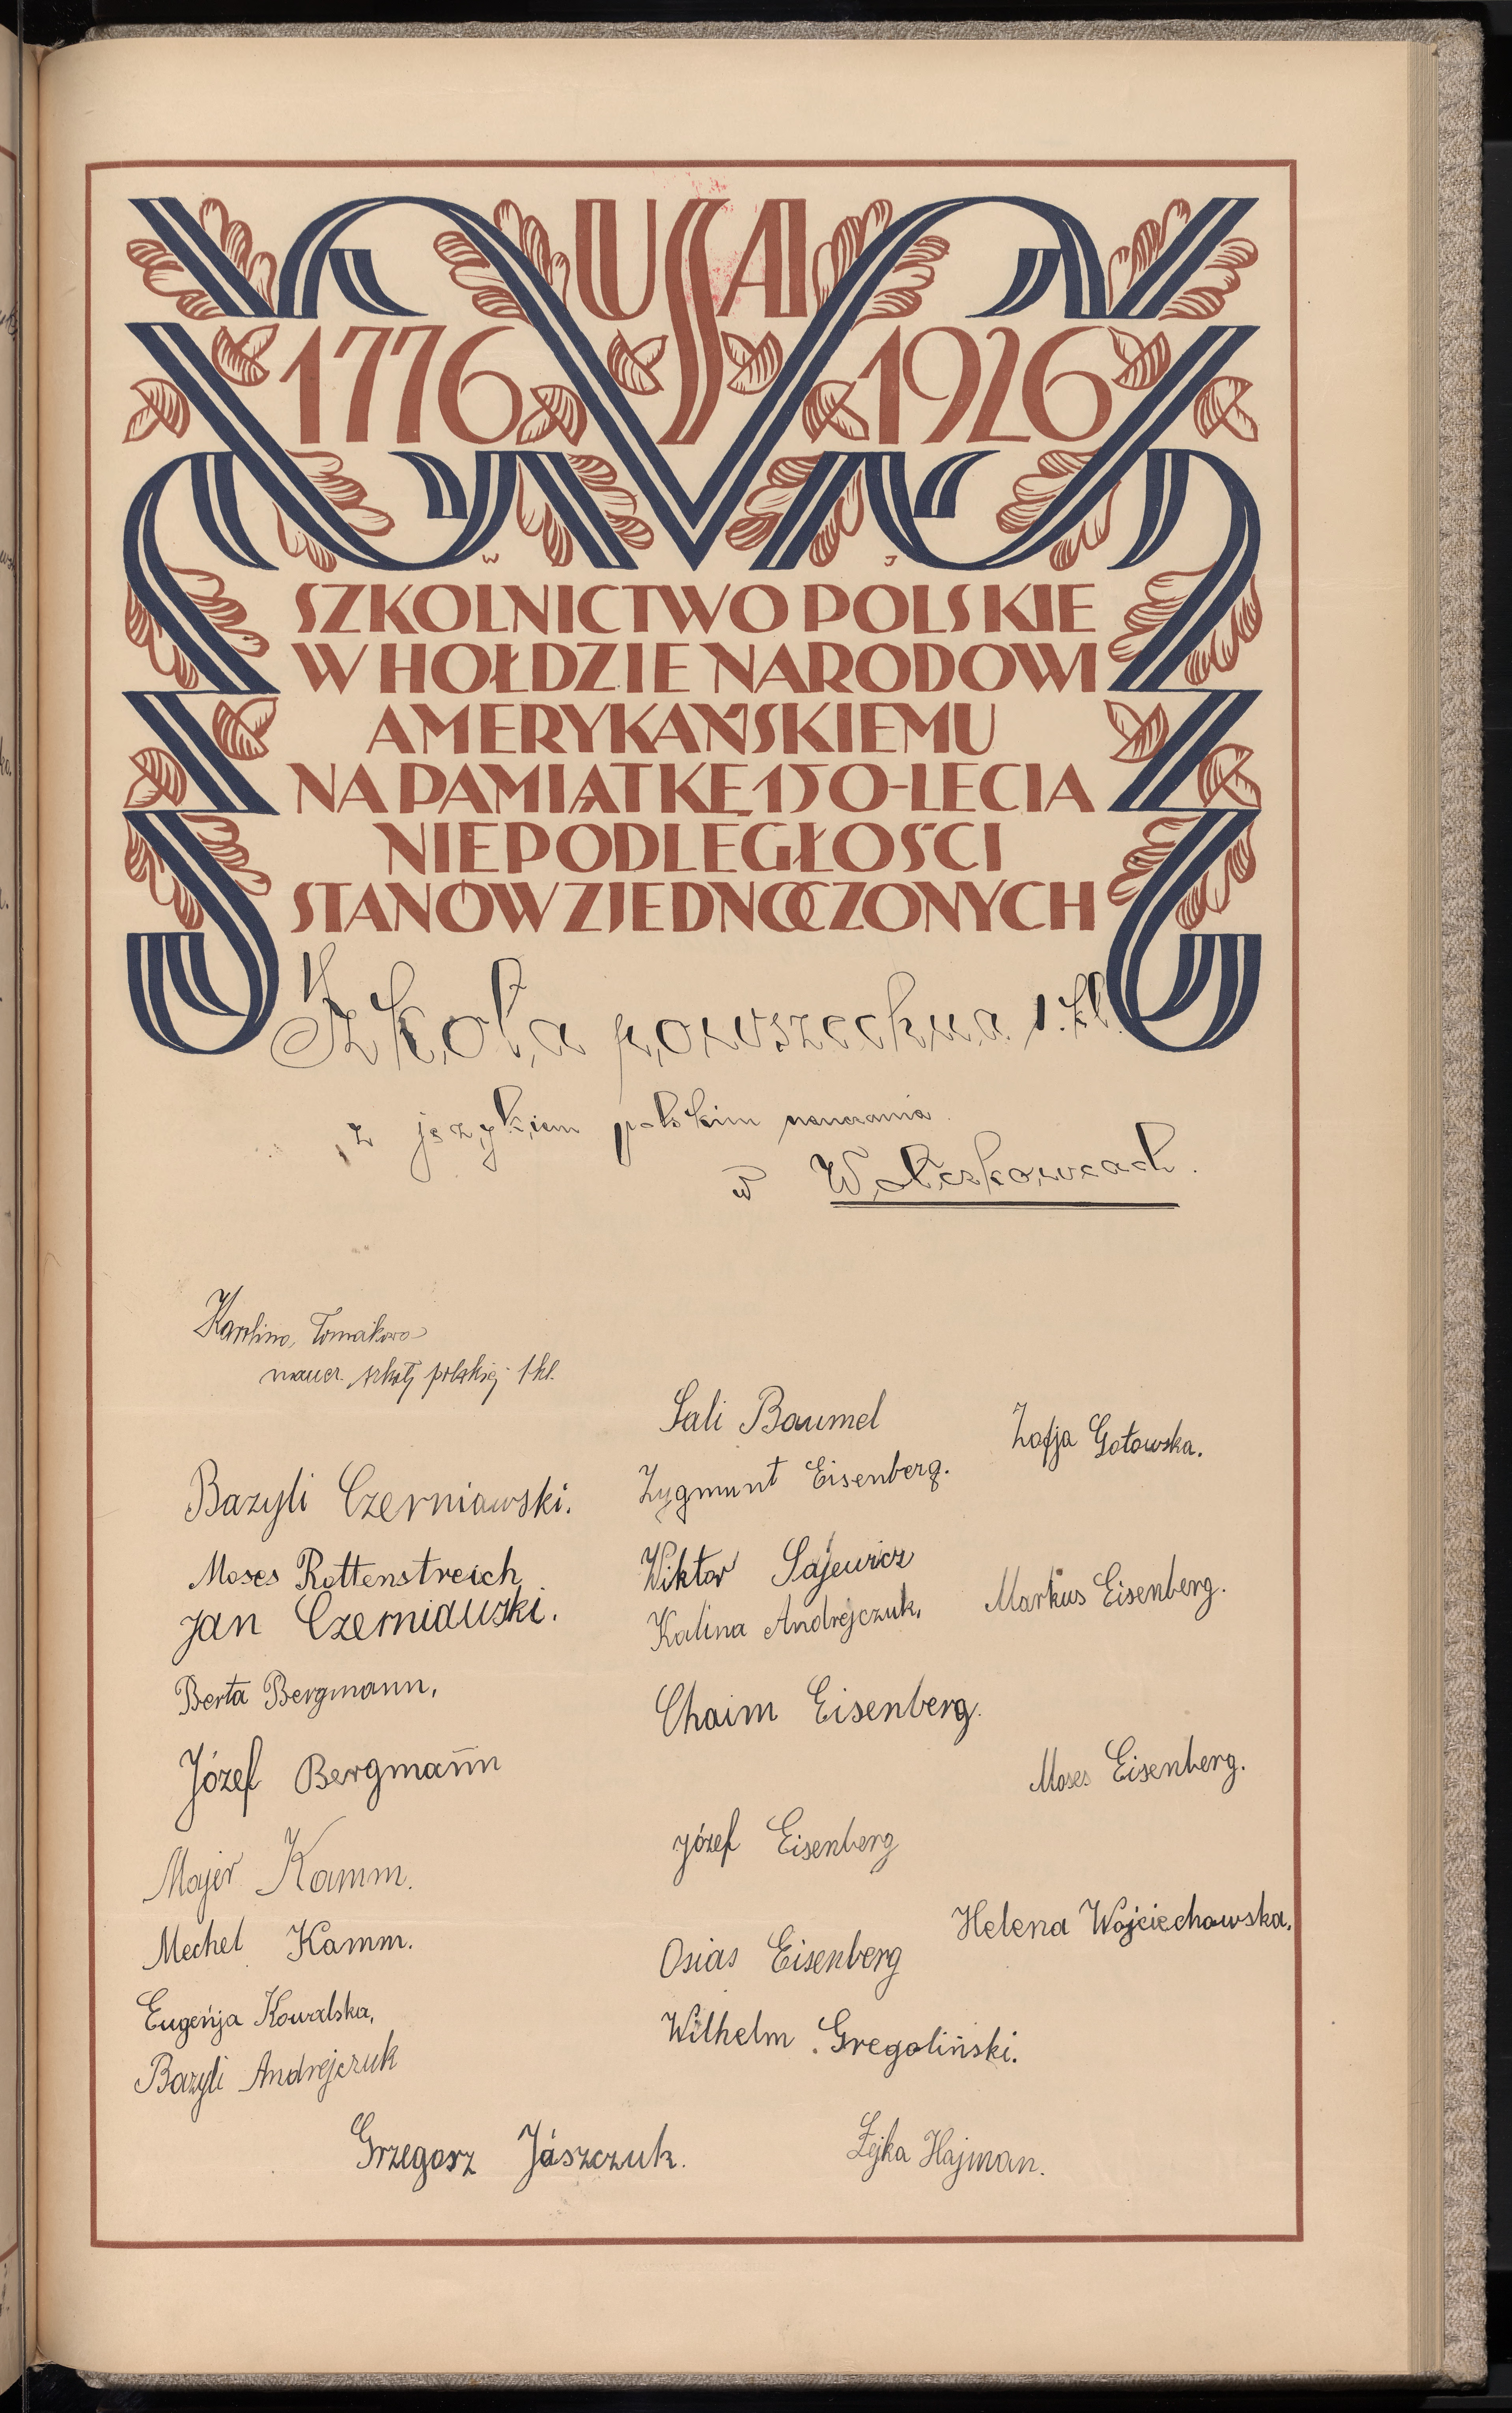 USA
1776 1926
W J
SZKOLNICTWO POLSKIE
W HOŁDZIE NARODOWI
AMERYKAŃSKIEMU
NA PAMIĄTKĘ 150-LECIA
NIEPODLEGŁOŚCI
STANÓW ZJEDNOCZONYCH
Szkoła powszechna 1. kl.
z językiem polskim nauczania
w Wołczkowcach.
Karolina Tomaikowa
naucz. szkoły polskiej 1 kl.
Bazyli Czerniawski.
Moses Rottenstreich
Jan Czerniawski.
Berta Bergmann,
Józef Bergmann
Majer Kamm.
Mechel Kamm.
Eugenja Kowalska,
Bazyli Andrejczuk
Grzegorz Jaszczuk.
Sali Baumel
Zygmunt Eisenberg.
Wiktor Sajewicz
Kalina Andrejczuk,
Chaim Eisenberg.
Józef Eisenberg
Osias Eisenberg
Wilhelm Gregoliński.
Zofja Gołowska.
Markus Eisenberg.
Moses Eisenberg.
Helena Wojciechowska.
Łejka Hajman.